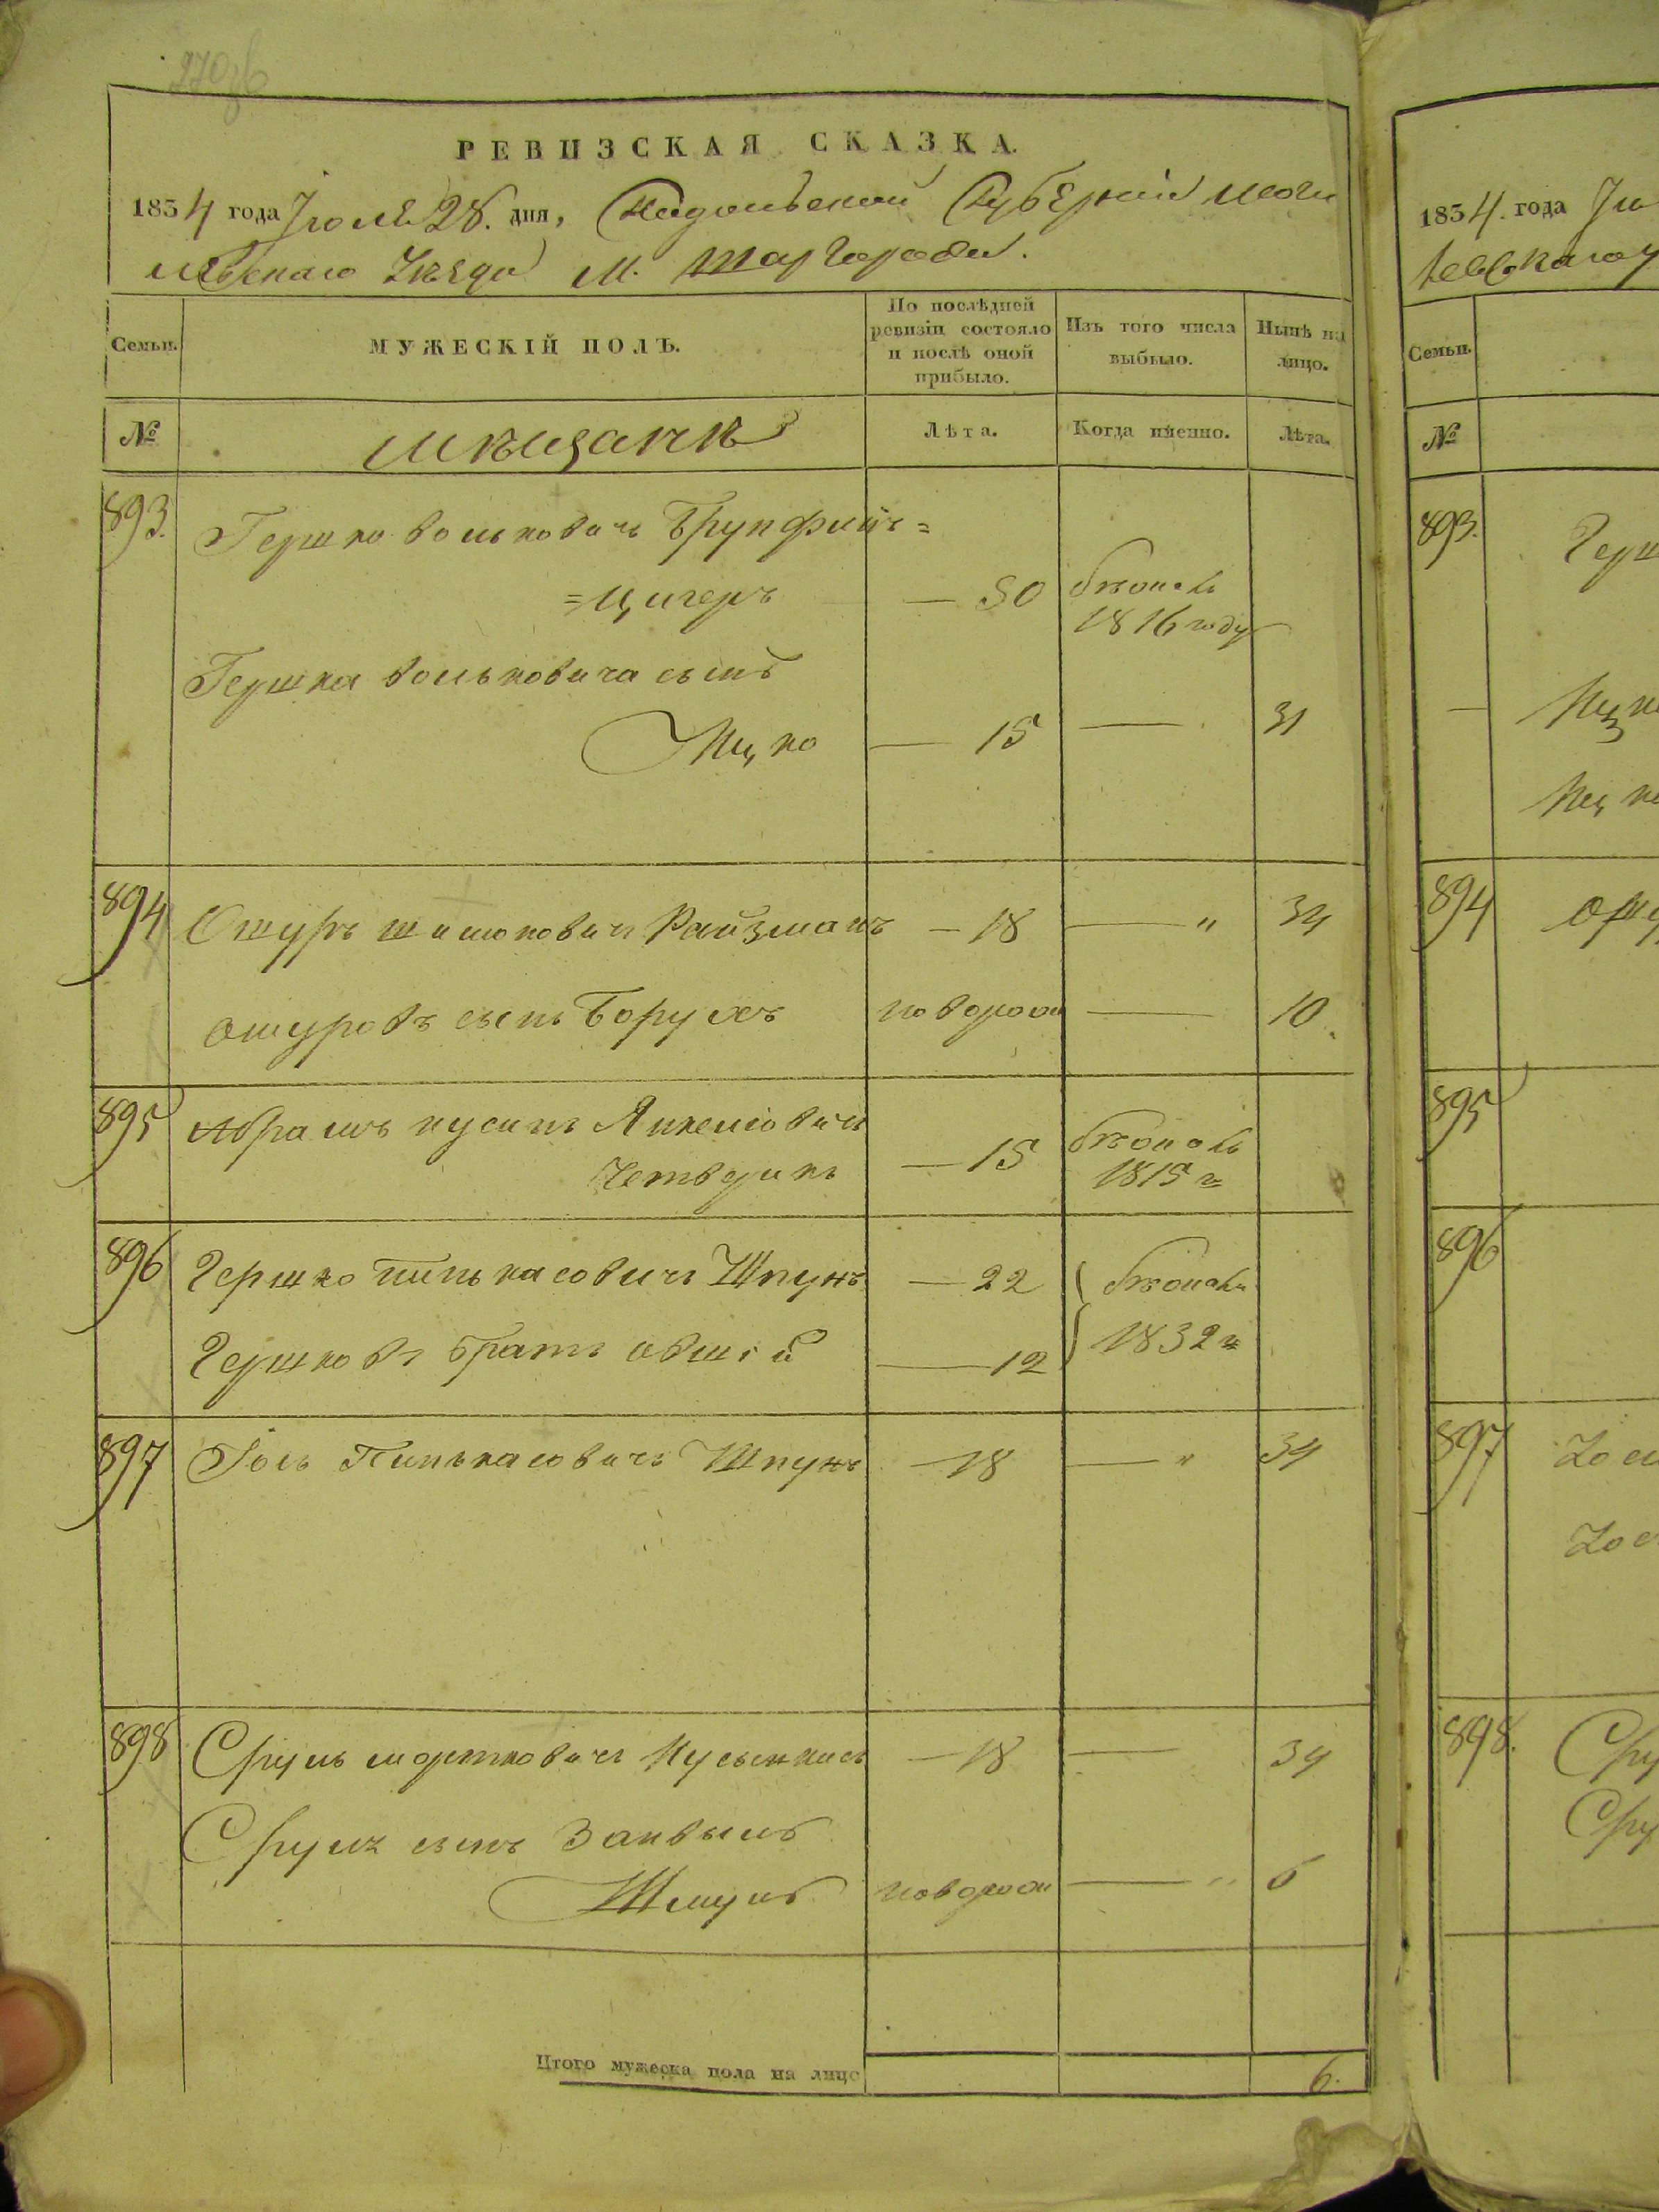 270 об
РЕВИЗСКАЯ СКАЗКА.
1834 года Іюля 28. дня, Подольской Губерніи Моги
левскаго Уѣзда М. Шаргорода.
Семьи.
МУЖЕСКІЙ ПОЛЪ.
По послѣдней ревизіи состояло и послѣ оной прибыло.
Изъ того числа выбыло.
Нынѣ на лицо.
№
Мѣщане
Лѣта.
Когда именно.
Лѣта.
893. Гершко Вольковичъ Брунфин=
=цигеръ — 50 бѣжалъ
1816 году
Гершка Вольковича сынъ
Ицко — 15 — 31
894 Ошуръ Шимоновичъ Райзманъ — 18 — " 34
Ошуровъ сынъ Борухъ новорож — 10.
895 Абрамъ Нусинъ Янкелiовичъ
— 15 бѣжалъ
1815 г
896 Гершко Пинькасовичъ Шпунъ — 22 бѣжали
Гершковъ братъ Овшій — 12 1832 г
897 Іось Пинькасовичъ Шпунъ — 18 — " 34
898 Сруль Мортковичъ — 18 — 34
Сруля сынъ Занвыль
Шмуль новорож — " 6
Итого мужеска пола на лицо 6.
1834. года Ію
левскаго У
Семьи.
№
893. Герш
— Ицк
Ицк
894 Ошу
895
896
897 Іос
Іос
898. Сру
Сру